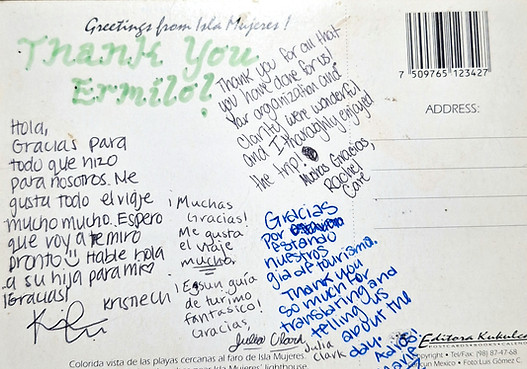 Greetings from Isla Mujeres!
Thank You
Ermilo!
Hola,
Gracias para
todo que hizo
para nosotros. Me
gusta todo el viaje
mucho mucho. Espero
que voy a te miro
pronto Hable hola
a su hija para mi
¡Gracias!
Kristie Ch
¡Muchas
Gracias!
Me gusta
el viaje
mucho
¡Es un guía
de turimo
fantasico!
Gracias,
Julia Clark
Julia
Clark
Thank you for all that
you have done for us!
Your organization and
clarity were wonderful
and I thoroughly enjoyed
the trip!
Muchas Gracias,
Rachel
Care
Gracias
por
estando
nuestros
gia de tourisma.
Thank you
so much for
translating and
telling us
about the
day!
Adios!
7 509765 123427
ADDRESS:
Editora Kukulcan
Copyright • Tel/Fax: (98) 87-47-68
Cancun Mexico • Foto: Luis Gómez C.
Colorida vista de las playas cercanas al faro de Isla Mujeres.
near Isla Mujeres' lighthouse.